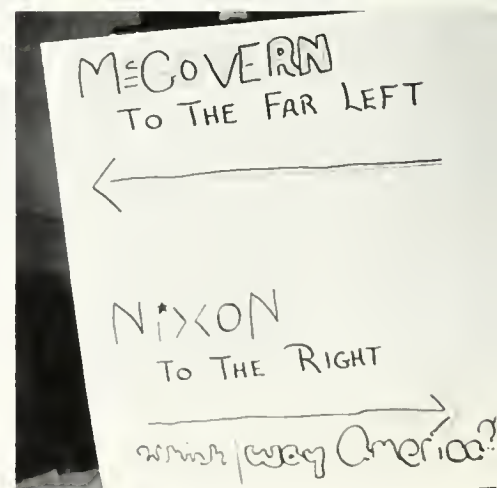 McGOVERN
TO THE FAR LEFT
NiXON
TO THE RIGHT
which way America?